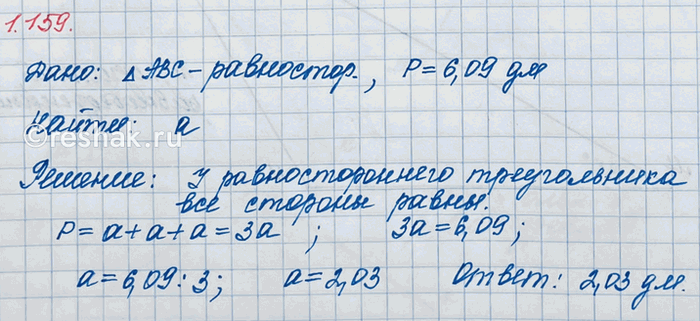 1.159.
Дано: △ABC - равностор., P = 6,09 дм
Найти: a
Решение: У равностороннего треугольника
все стороны равны.
P = a + a + a = 3a ; 3a = 6,09 ;
a = 6,09 : 3 ; a = 2,03 Ответ: 2,03 дм.
reshak.ru